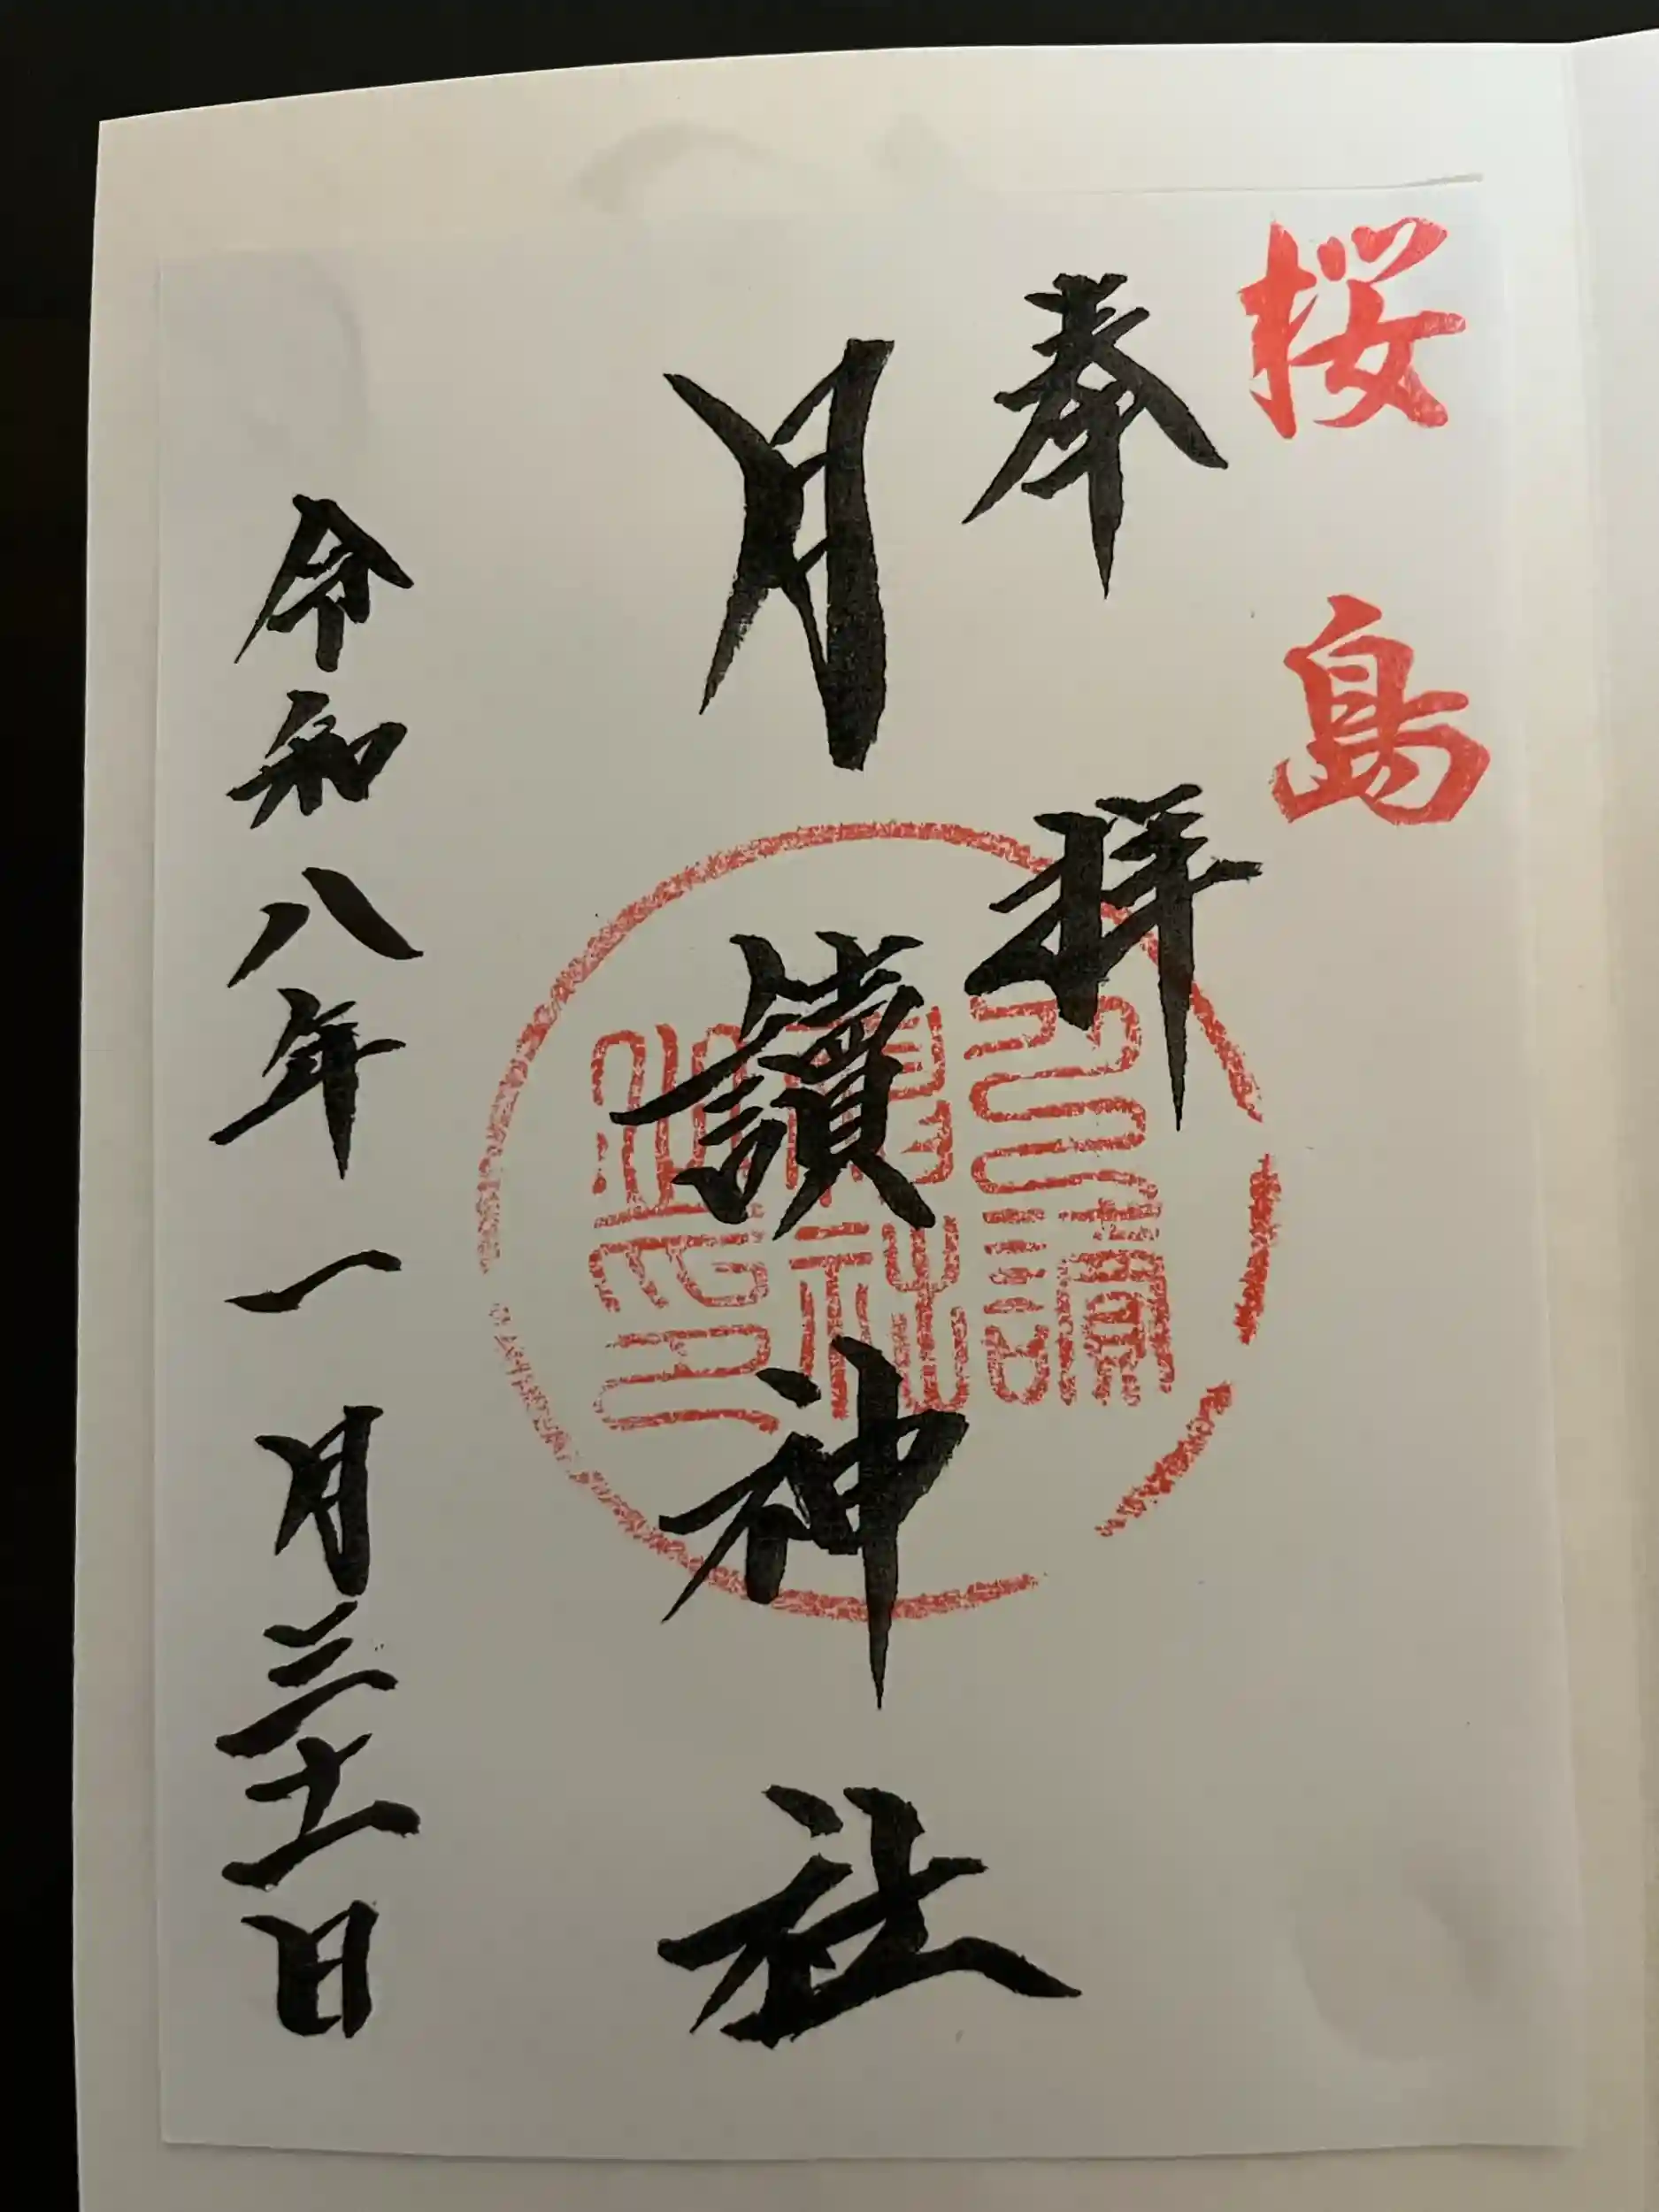 桜島
奉拝
月讀神社
月讀神社之印
令和八年一月三十一日